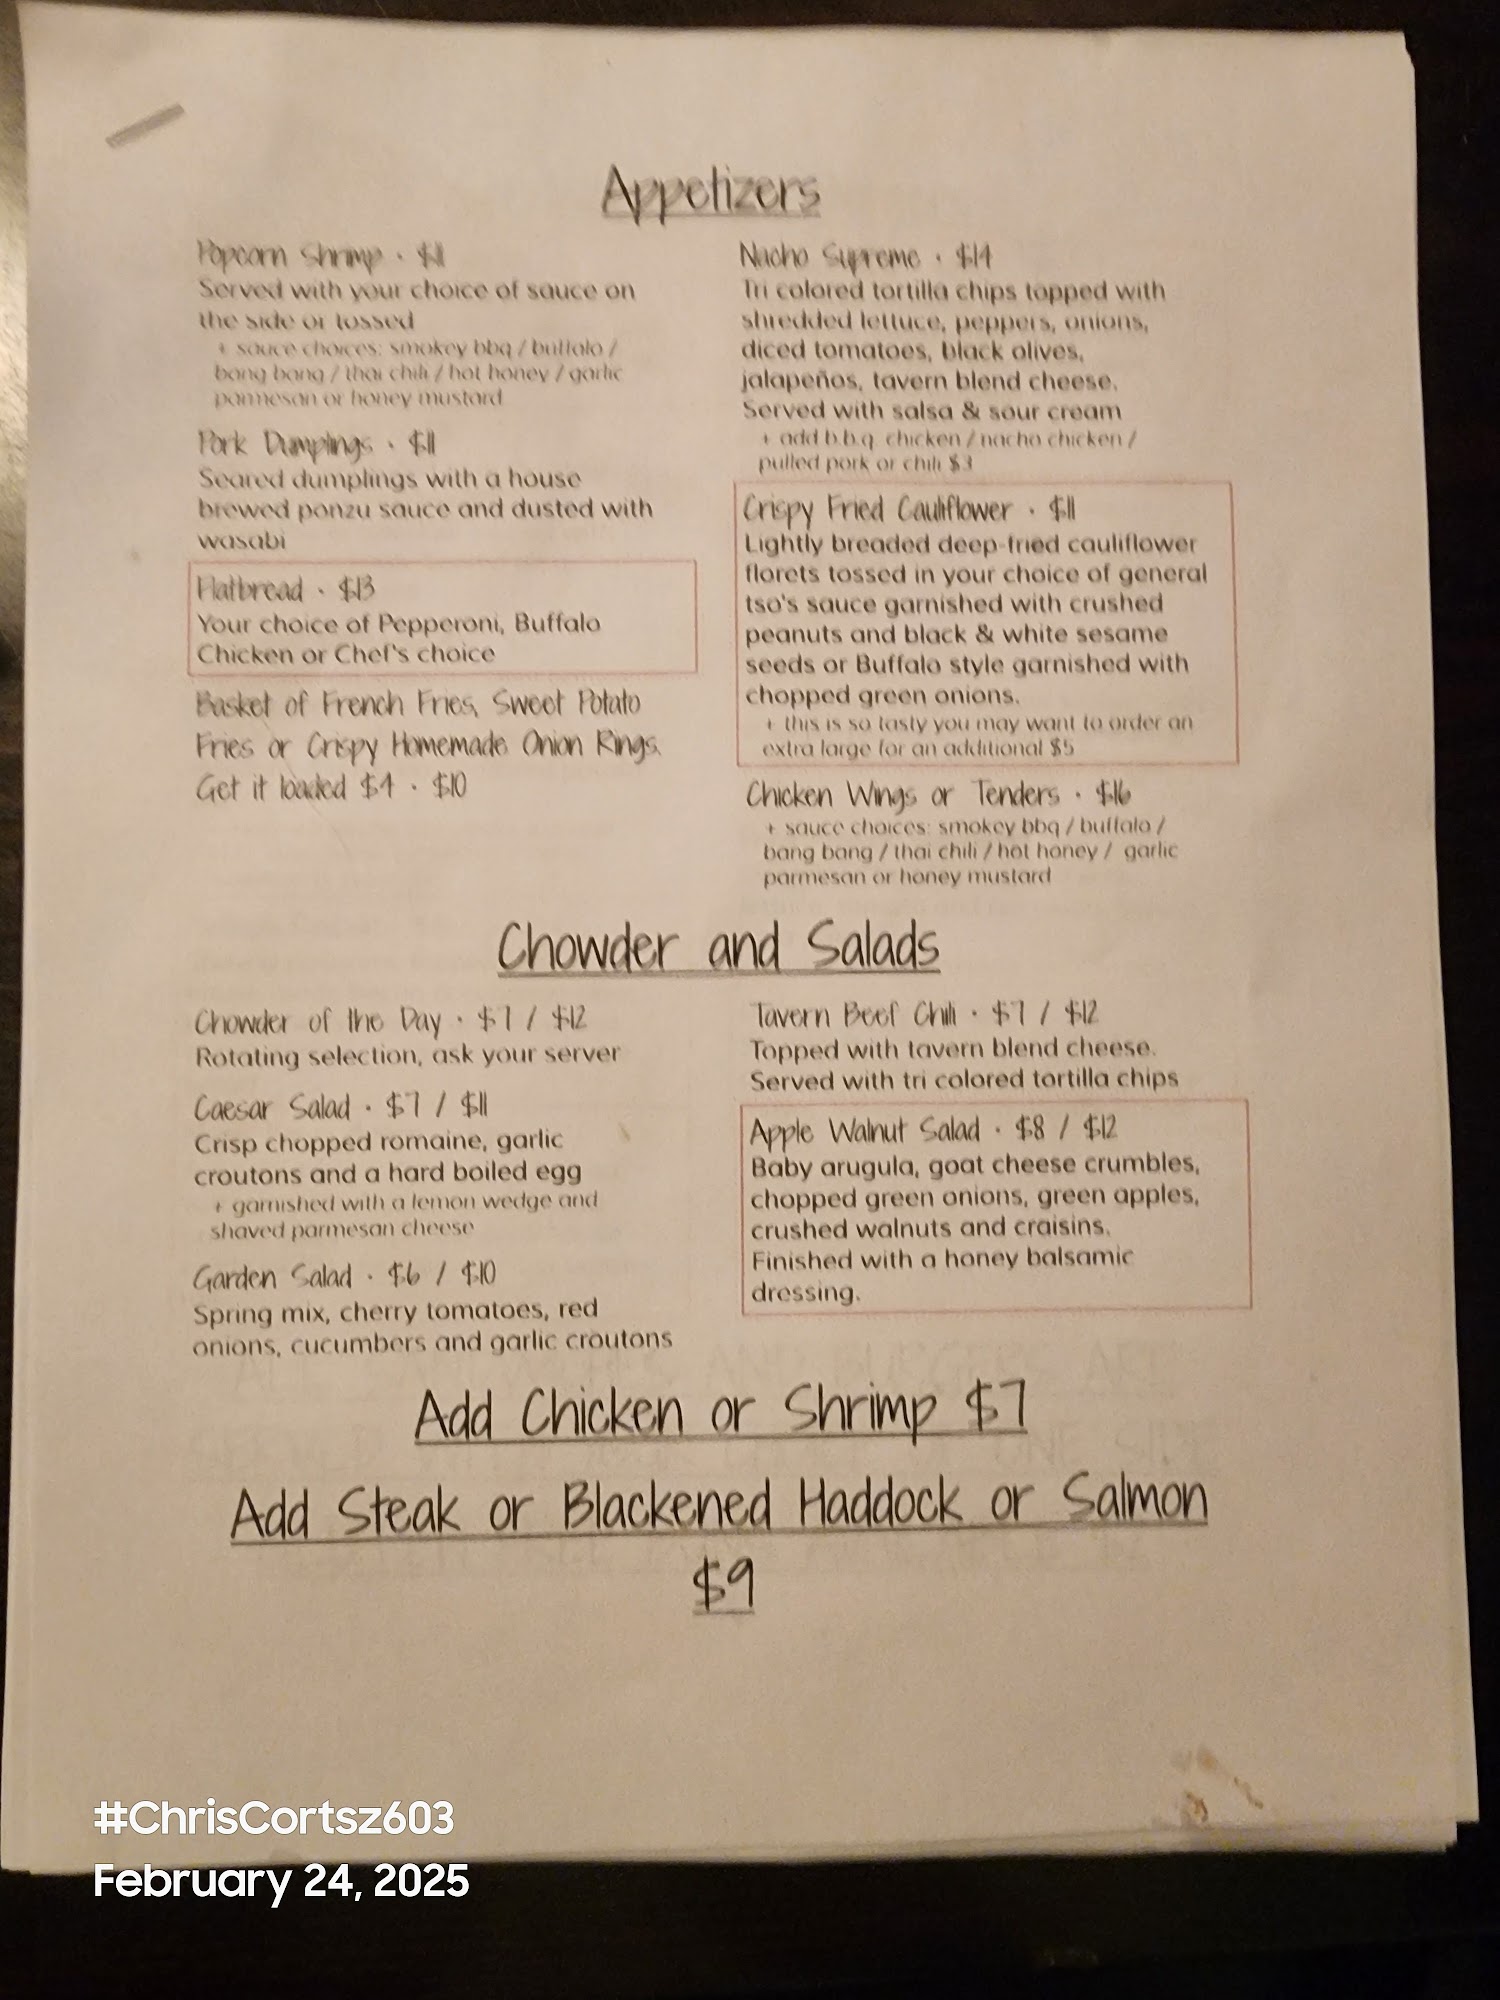 Appetizers
Popcorn Shrimp · $11
Served with your choice of sauce on
the side or tossed
+ sauce choices: smokey bbq / buffalo /
bang bang / thai chili / hot honey / garlic
parmesan or honey mustard
Pork Dumplings · $11
Seared dumplings with a house
brewed ponzu sauce and dusted with
wasabi
Flatbread · $13
Your choice of Pepperoni, Buffalo
Chicken or Chef's choice
Basket of French Fries, Sweet Potato
Fries or Crispy Homemade Onion Rings.
Get it loaded $4 · $10
Nacho Supreme · $14
Tri colored tortilla chips topped with
shredded lettuce, peppers, onions,
diced tomatoes, black olives,
jalapeños, tavern blend cheese.
Served with salsa & sour cream
+ add b.b.q. chicken / nacho chicken /
pulled pork or chili $3
Crispy Fried Cauliflower · $11
Lightly breaded deep-fried cauliflower
florets tossed in your choice of general
tso's sauce garnished with crushed
peanuts and black & white sesame
seeds or Buffalo style garnished with
chopped green onions.
+ this is so tasty you may want to order an
extra large for an additional $5
Chicken Wings or Tenders · $16
+ sauce choices: smokey bbq / buffalo /
bang bang / thai chili / hot honey / garlic
parmesan or honey mustard
Chowder and Salads
Chowder of the Day · $7 / $12
Rotating selection, ask your server
Caesar Salad · $7 / $11
Crisp chopped romaine, garlic
croutons and a hard boiled egg
+ garnished with a lemon wedge and
shaved parmesan cheese
Garden Salad · $6 / $10
Spring mix, cherry tomatoes, red
onions, cucumbers and garlic croutons
Tavern Beef Chili · $7 / $12
Topped with tavern blend cheese.
Served with tri colored tortilla chips
Apple Walnut Salad · $8 / $12
Baby arugula, goat cheese crumbles,
chopped green onions, green apples,
crushed walnuts and craisins.
Finished with a honey balsamic
dressing.
Add Chicken or Shrimp $7
Add Steak or Blackened Haddock or Salmon
$9
#ChrisCortsz603
February 24, 2025